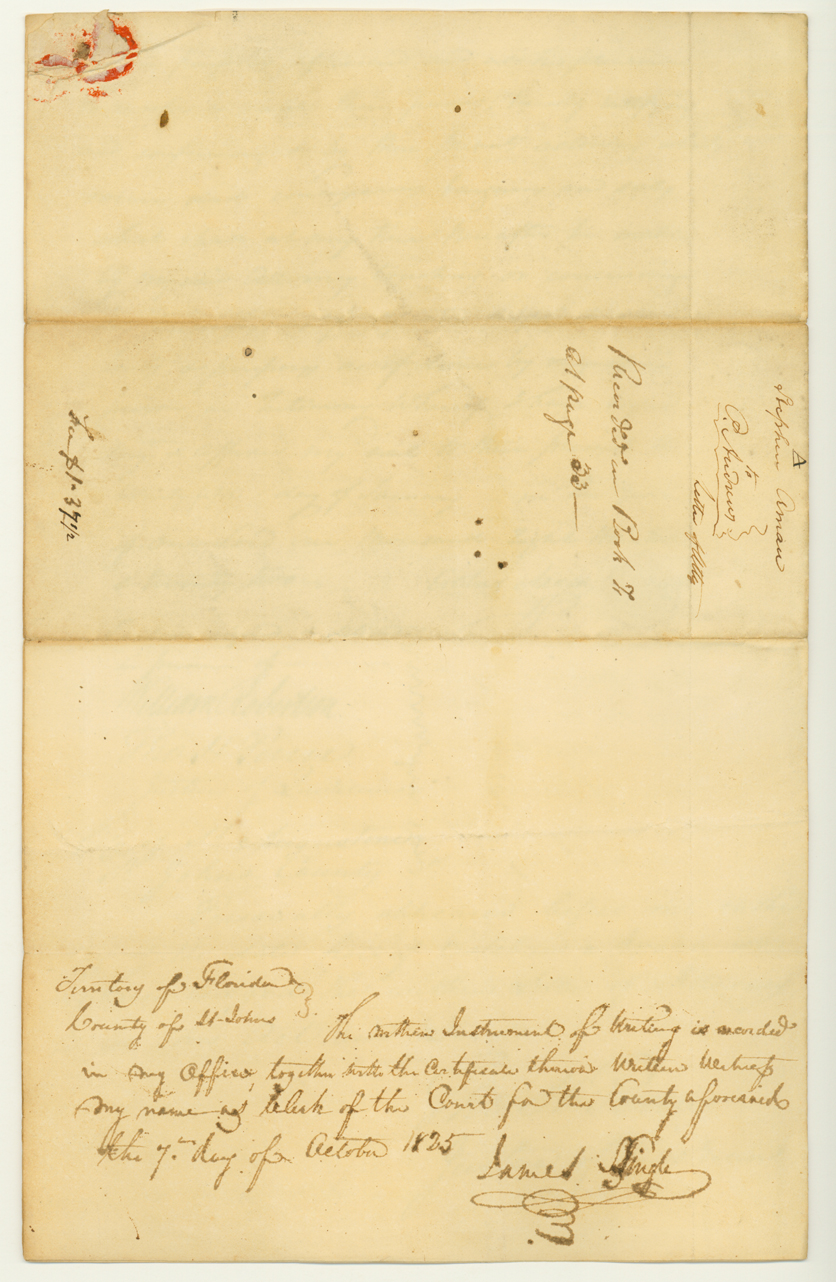 A
Stephen Aman
to
P. Andrews
Letter of Atty
Recorded in Book
at page 33
Fee $1.37 1/2
Territory of Florida
County of St Johns
The within Instrument of Writing is recorded
in my Office, together with the Certificate thereon Written Witness
my name as Clerk of the Court for the County aforesaid
the 7th day of October 1825
James